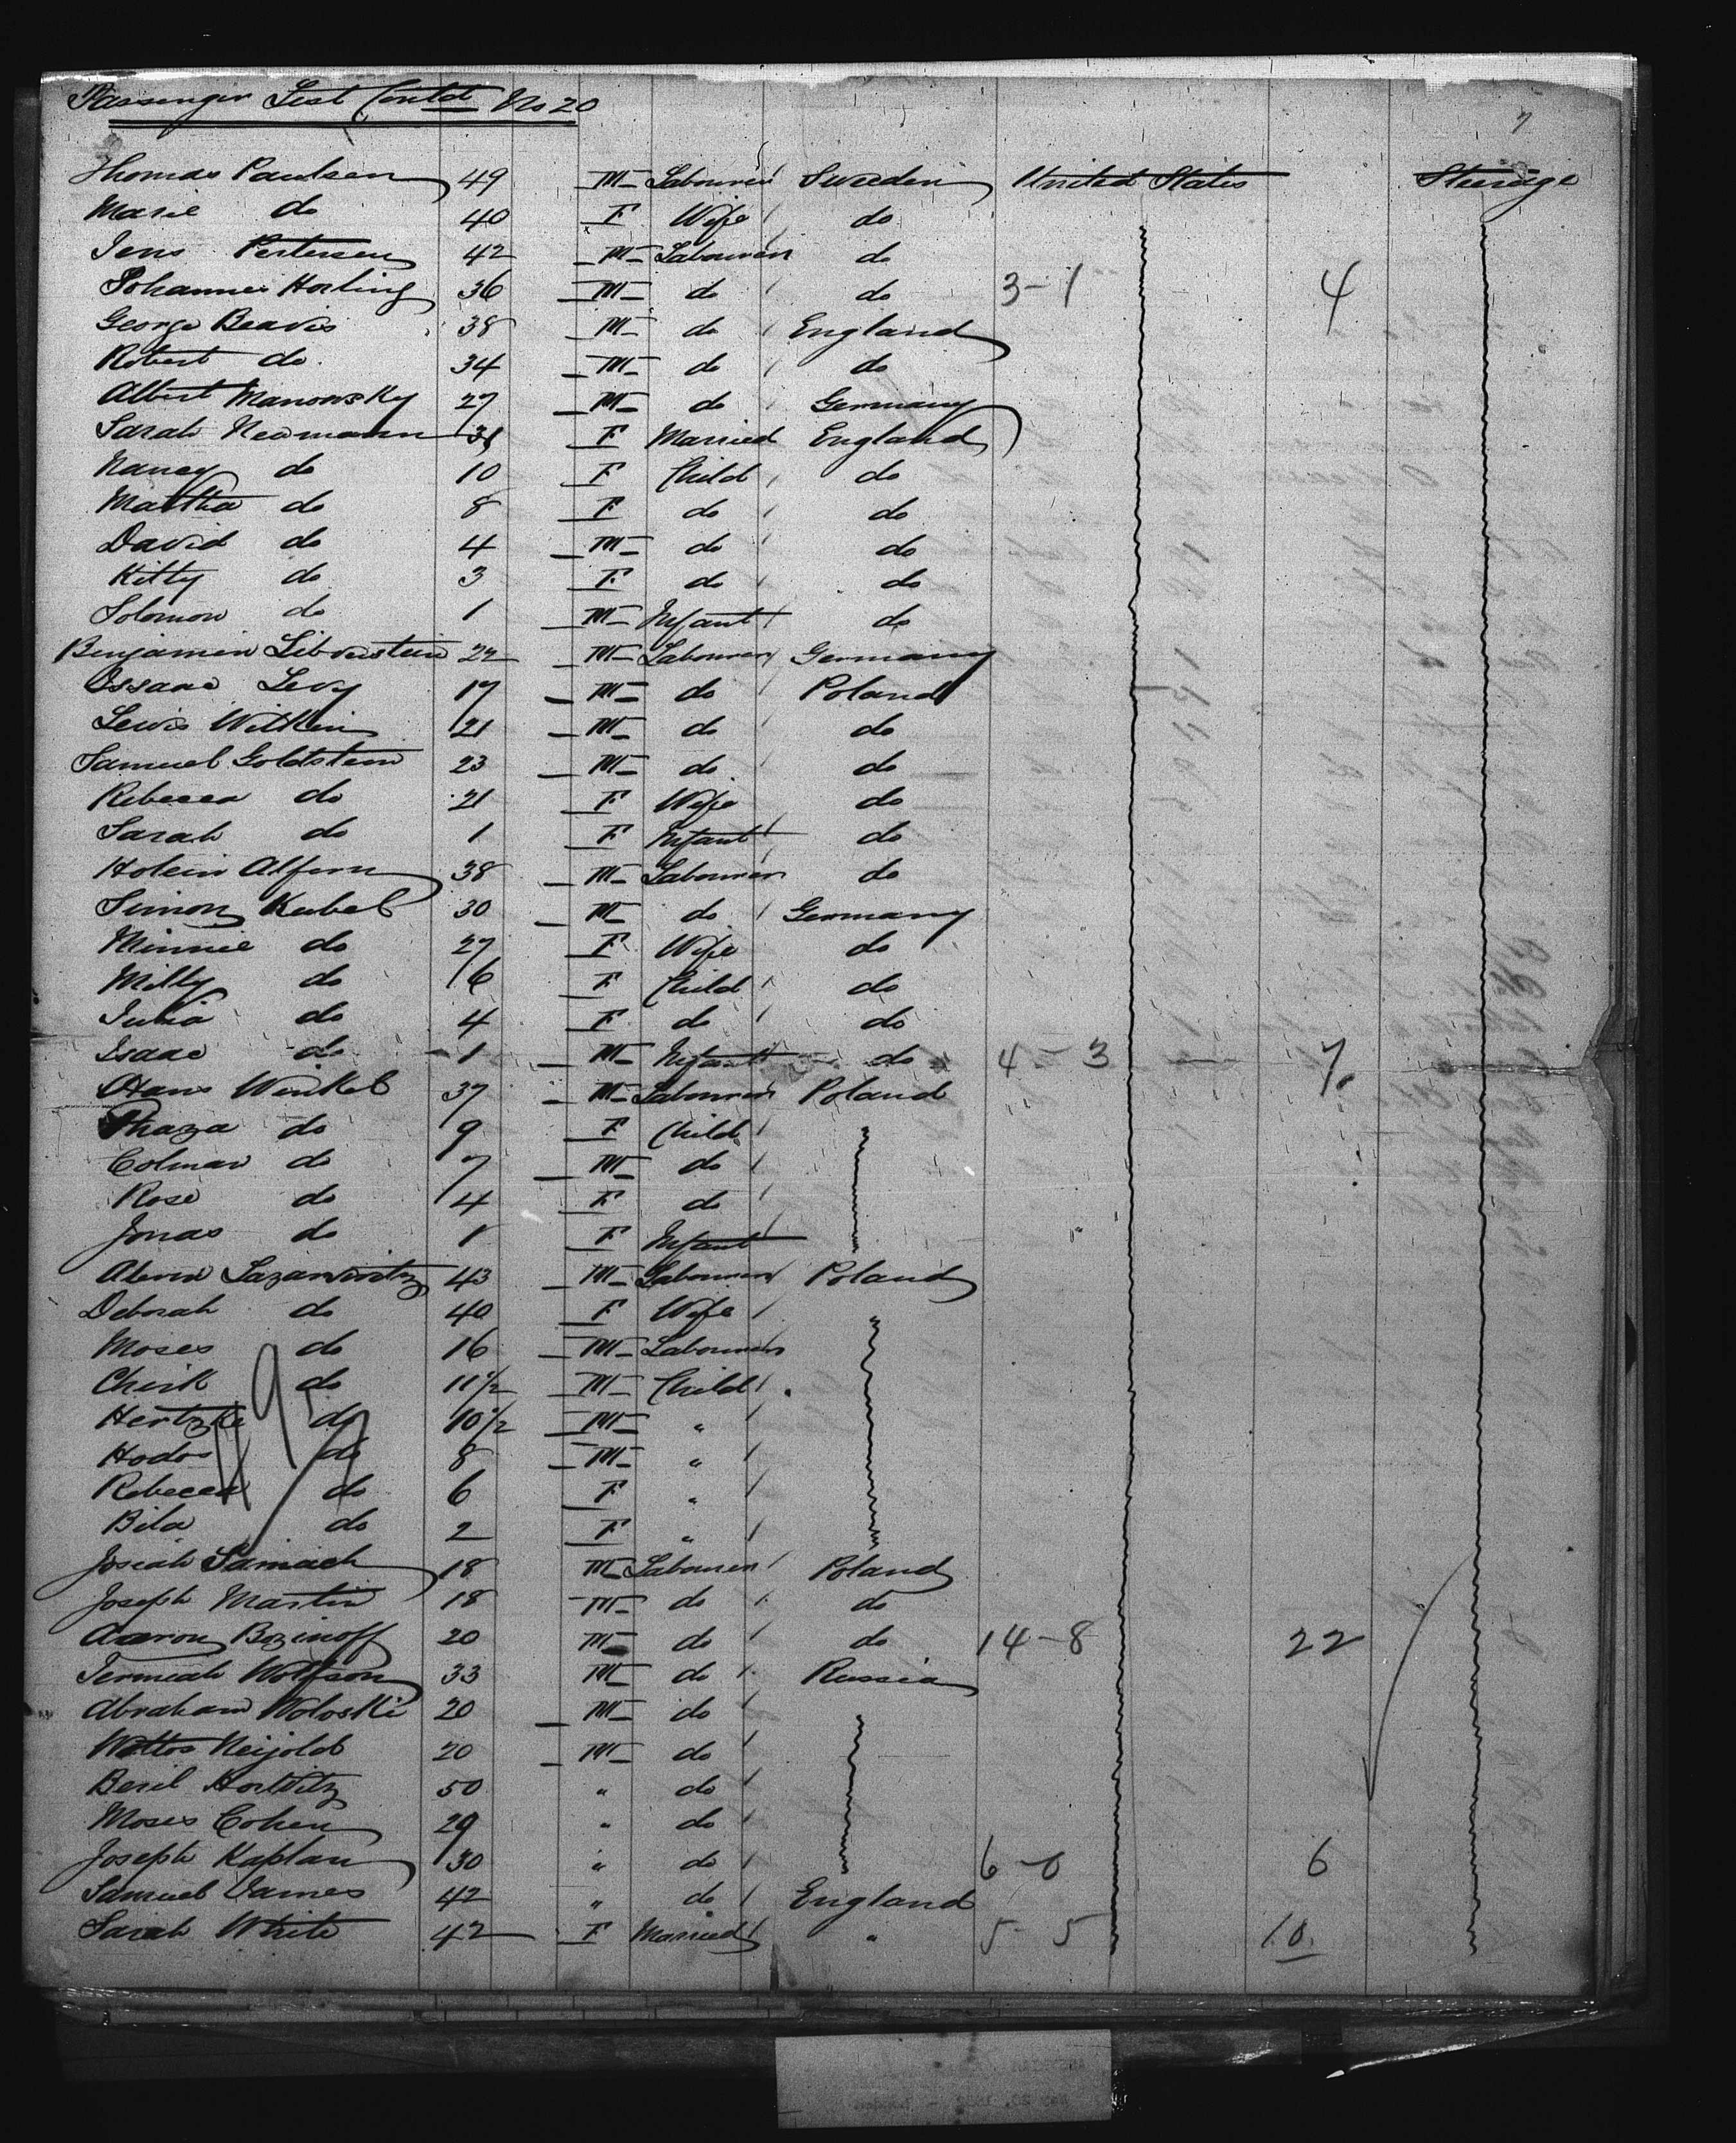 Passenger List Contd No 20
7
Thomas Paulsen 49 M Labourer Sweden United States Steerage
Marie do 40 F Wife do
Jens Pertersen 42 M Labourer do
Johannes Horling 36 M do do 3-1 4
George Beavis 38 M do England
Robert do 34 M do do
Albert Manowsky 27 M do Germany
Sarah Newmann F Married England
Nancy do 10 F Child do
Martha do 8 F do do
David do 4 M do do
Kitty do 3 F do do
Solomon do 1 M Infant do
Benjamin Librerstein 22 M Labourer Germany
Issaac Levy 17 M do Poland
Lewis Witkin 21 M do do
Samuel Goldstein 23 M do do
Rebecca do 21 F Wife do
Sarah do 1 F Infant do
Holein Alfern 38 M Labourer do
Simon Kubel 30 M do Germany
Minnie do 27 F Wife do
Milly do 6 F Child do
Julia do 4 F do do
Isaac do 1 M Infant do 4-3 7
Hans Winkel 37 M Labourer Poland
Thaza do 9 F Child
Colman do 7 M do
Rose do 4 F do
Jonas do 1 F Infant
Lazarwitz 43 M Labourer Poland
Deborah do 40 F Wife
Moses do 16 M Labourer
Cheik do 11½ M Child
Hertzke do 10½ M "
Hodos do 8 M "
Rebecca do 6 F "
Bila do 2 F "
Josiah Samach 18 M Labourer Poland
Joseph Martin 18 M do do
Aaron Bozinoff 20 M do do 14-8 22
Jermiah Wolfson 33 M do Russia
Abraham Woloski 20 M do
Wottos Neijold 20 M do
Beril Hortvitz 50 " do
Moses Cohen 29 " do
Joseph Kaplan 30 " do 6-0 6
Samuel James 42 " do England
Sarah White 42 F Married " 5-5 10